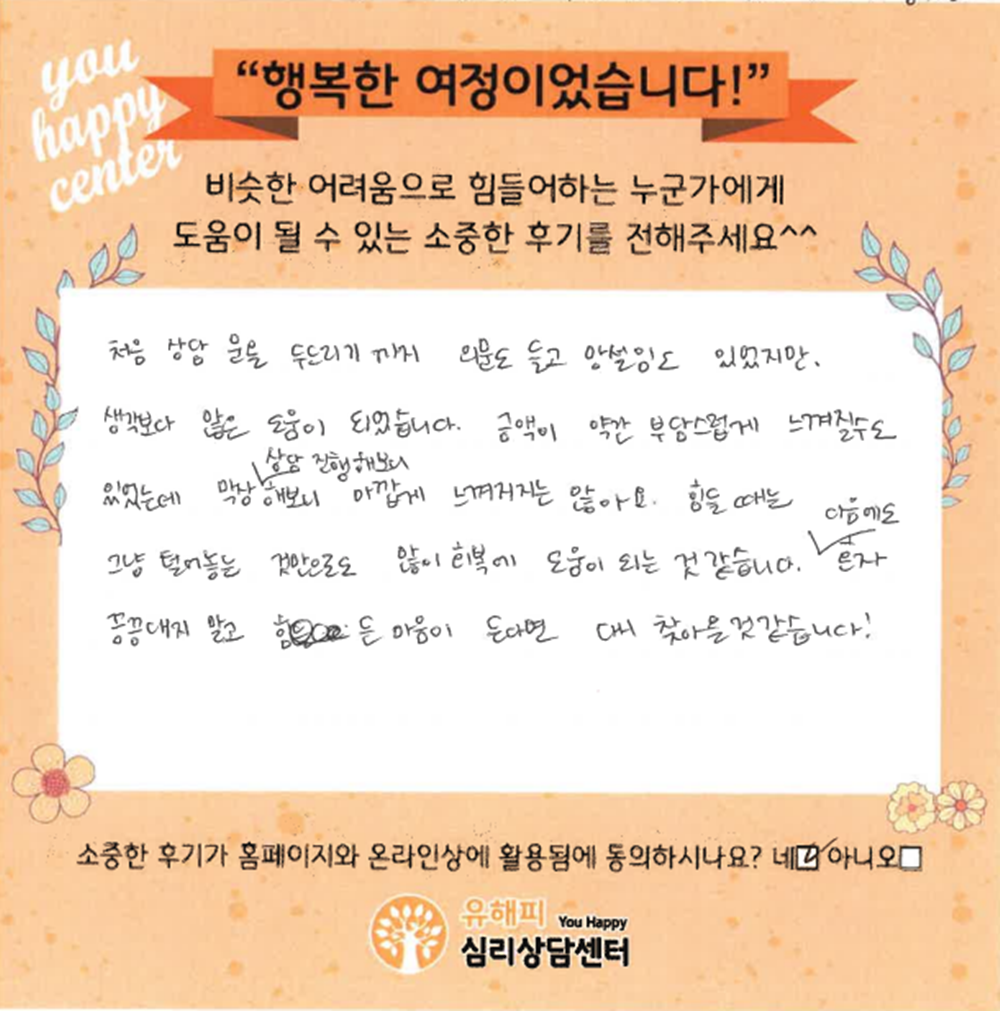 you
happy
center
“행복한 여정이었습니다!”
비슷한 어려움으로 힘들어하는 누군가에게
도움이 될 수 있는 소중한 후기를 전해주세요^^
처음 상담 문을 두드리기 까지 의문도 들고 망설임도 있었지만.
생각보다 많은 도움이 되었습니다. 금액이 약간 부담스럽게 느껴질수도
상담 진행해보니
있었는데 막상 해보니 아깝게 느껴지지는 않아요. 힘들 때는
다음에도
그냥 털어놓는 것만으로도 많이 회복에 도움이 되는 것 같습니다. 혼자
끙끙대지 말고 힘 든 마음이 든다면 다시 찾아올것같습니다!
소중한 후기가 홈페이지와 온라인상에 활용됨에 동의하시나요? 네☑아니오☐
유해피 You Happy
심리상담센터